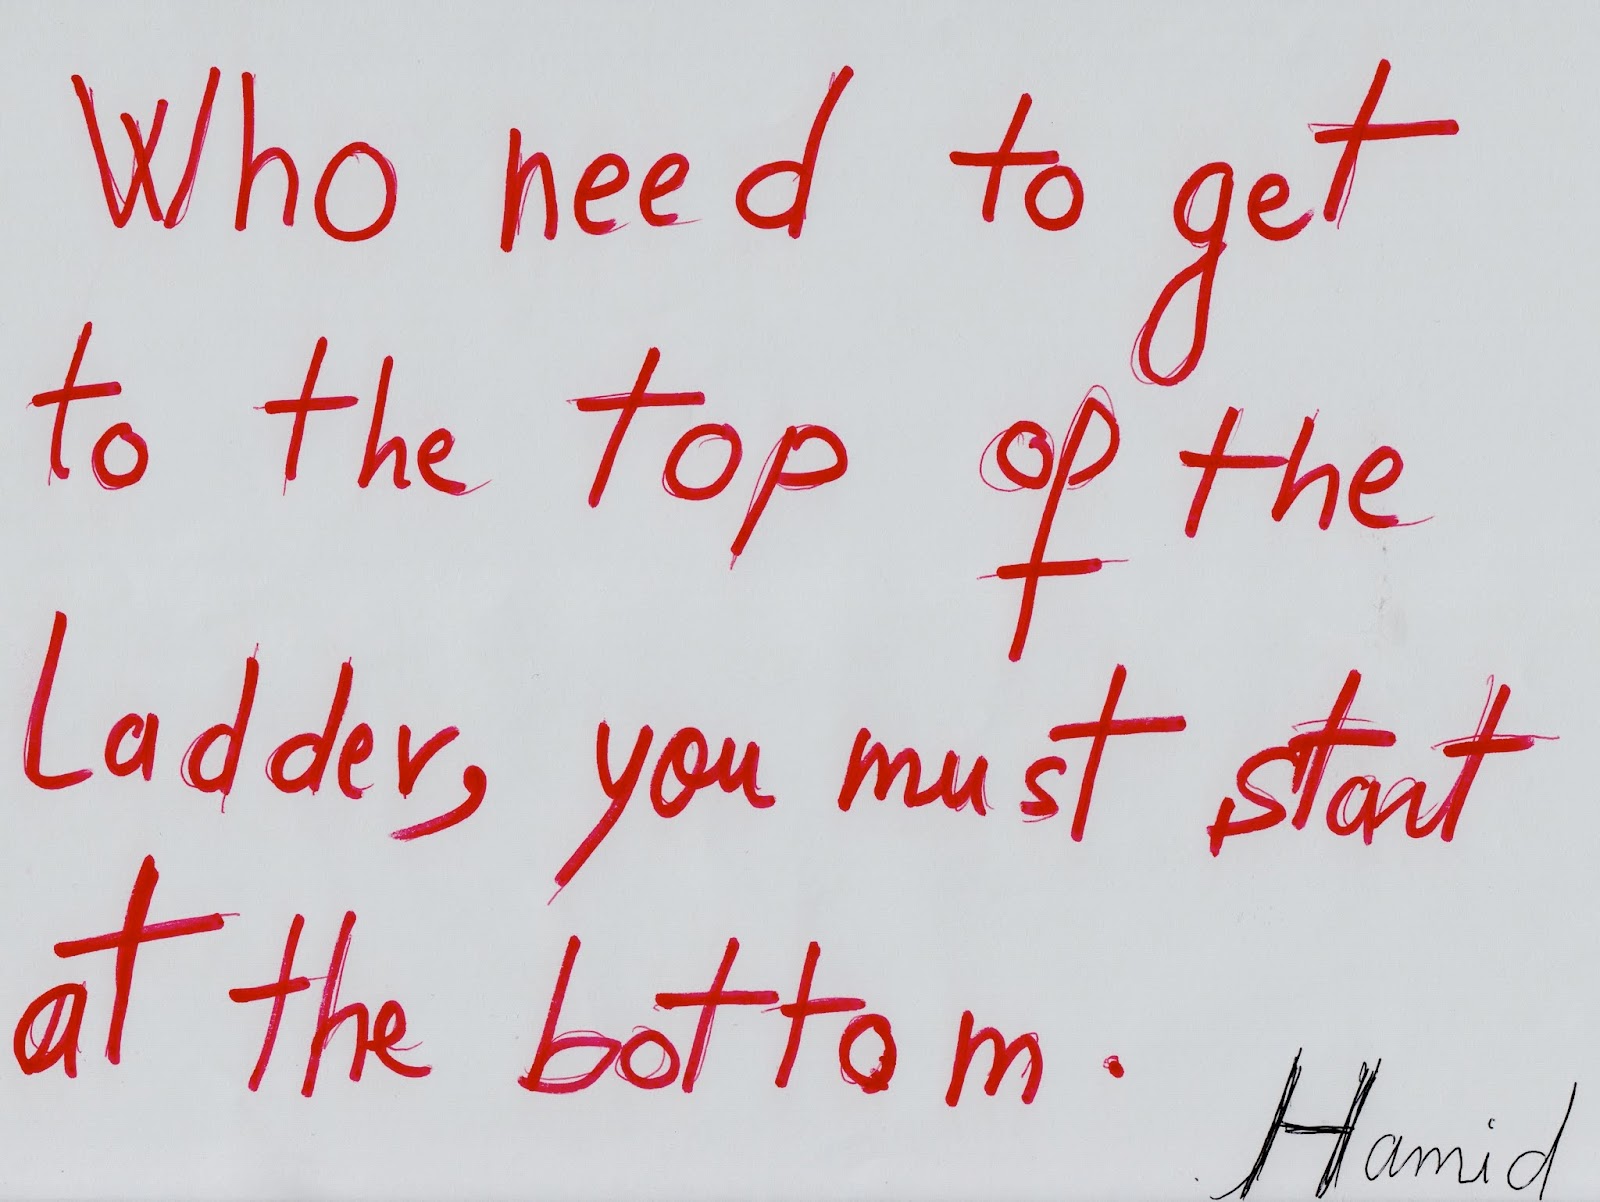 Who need to get
to the top of the
Ladder, you must start
at the bottom.
Hamid